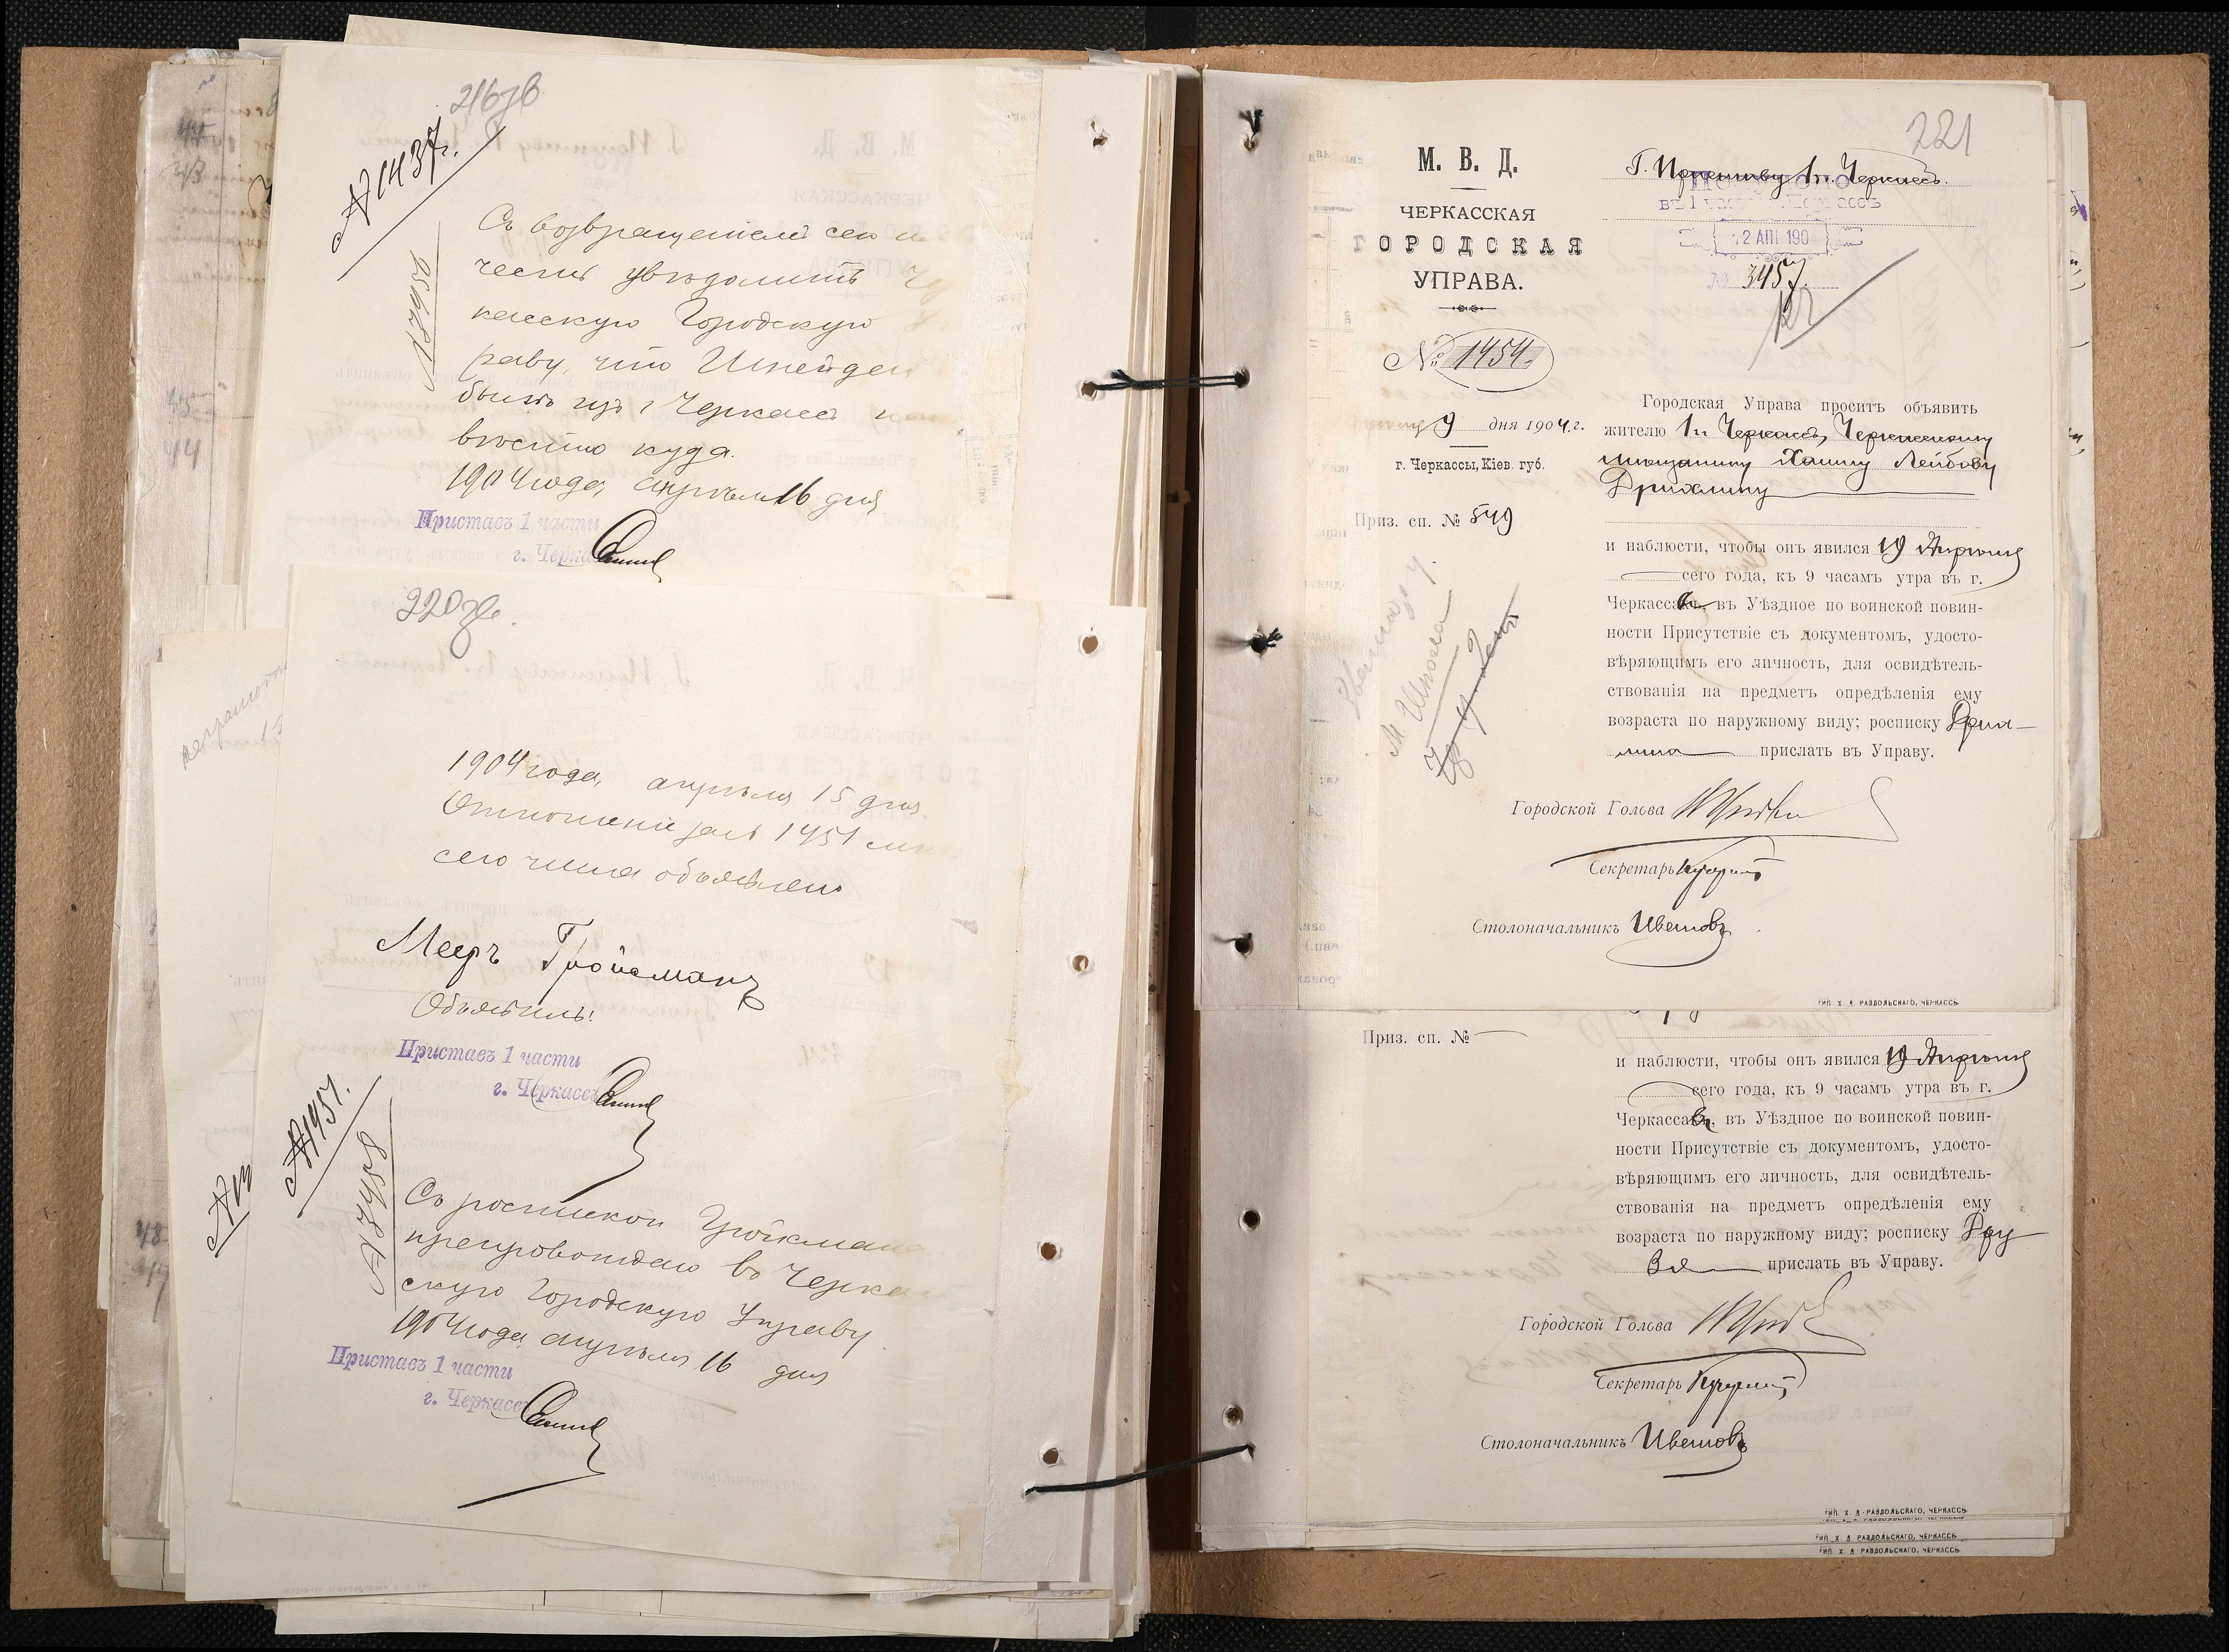 216 зв
№ 1437.
№ 3456
Съ возвращеніемъ сего и
честь увѣдомить Чер
касскую Городскую У
раву, что Шнейдер
былъ изъ г. Черкассъ
вѣстно куда.
1904 года, апрѣля 16 дня
Приставъ 1 части
г. Черкассъ
220 зв.
1904 года, апрѣля 15 дня
Отношеніе за № 1451 мнѣ
сего числа объявлено
Мееръ Гройсманъ
Объявилъ:
Приставъ 1 части
г. Черкассъ
№ 1451.
№ 3458
Съ роспиской Гройсмана
препровождаю въ Черкас
скую Городскую Управу
1904 года, апрѣля 16 дня
Приставъ 1 части
г. Черкассъ
221
М. В. Д.
ЧЕРКАССКАЯ
ГОРОДСКАЯ
УПРАВА.
№ 1454.
9 дня 1904 г.
г. Черкассы, Кіев. губ.
Приз. сп. № 549
Г. Приставу 1 ч. Черкассъ.
12 АПР 1904
№ 3457
Городская Управа проситъ объявить
жителю 1 ч. Черкассъ, Черкасскому
мѣщанину Хаиму Лейбову
Дрихлину
и наблюсти, чтобы онъ явился 19 Апрѣля
сего года, къ 9 часамъ утра въ г.
Черкассы, въ Уѣздное по воинской повин-
ности Присутствіе съ документомъ, удосто-
вѣряющимъ его личность, для освидѣтель-
ствованія на предметъ опредѣленія ему
возраста по наружному виду; росписку Дрих-
лина прислать въ Управу.
Городской Голова
Секретарь
Столоначальникъ Цвѣтовъ
ТИП. Х. Д. РАЗДОЛЬСКАГО, ЧЕРКАССЪ
Приз. сп. №
и наблюсти, чтобы онъ явился 19 Апрѣля
сего года, къ 9 часамъ утра въ г.
Черкассы, въ Уѣздное по воинской повин-
ности Присутствіе съ документомъ, удосто-
вѣряющимъ его личность, для освидѣтель-
ствованія на предметъ опредѣленія ему
возраста по наружному виду; росписку Дру
зя прислать въ Управу.
Городской Голова
Секретарь
Столоначальникъ Цвѣтовъ
ТИП. Х. Д. РАЗДОЛЬСКАГО, ЧЕРКАССЪ
ТИП. Х. Д. РАЗДОЛЬСКАГО, ЧЕРКАССЪ
ТИП. Х. Д. РАЗДОЛЬСКАГО, ЧЕРКАССЪ